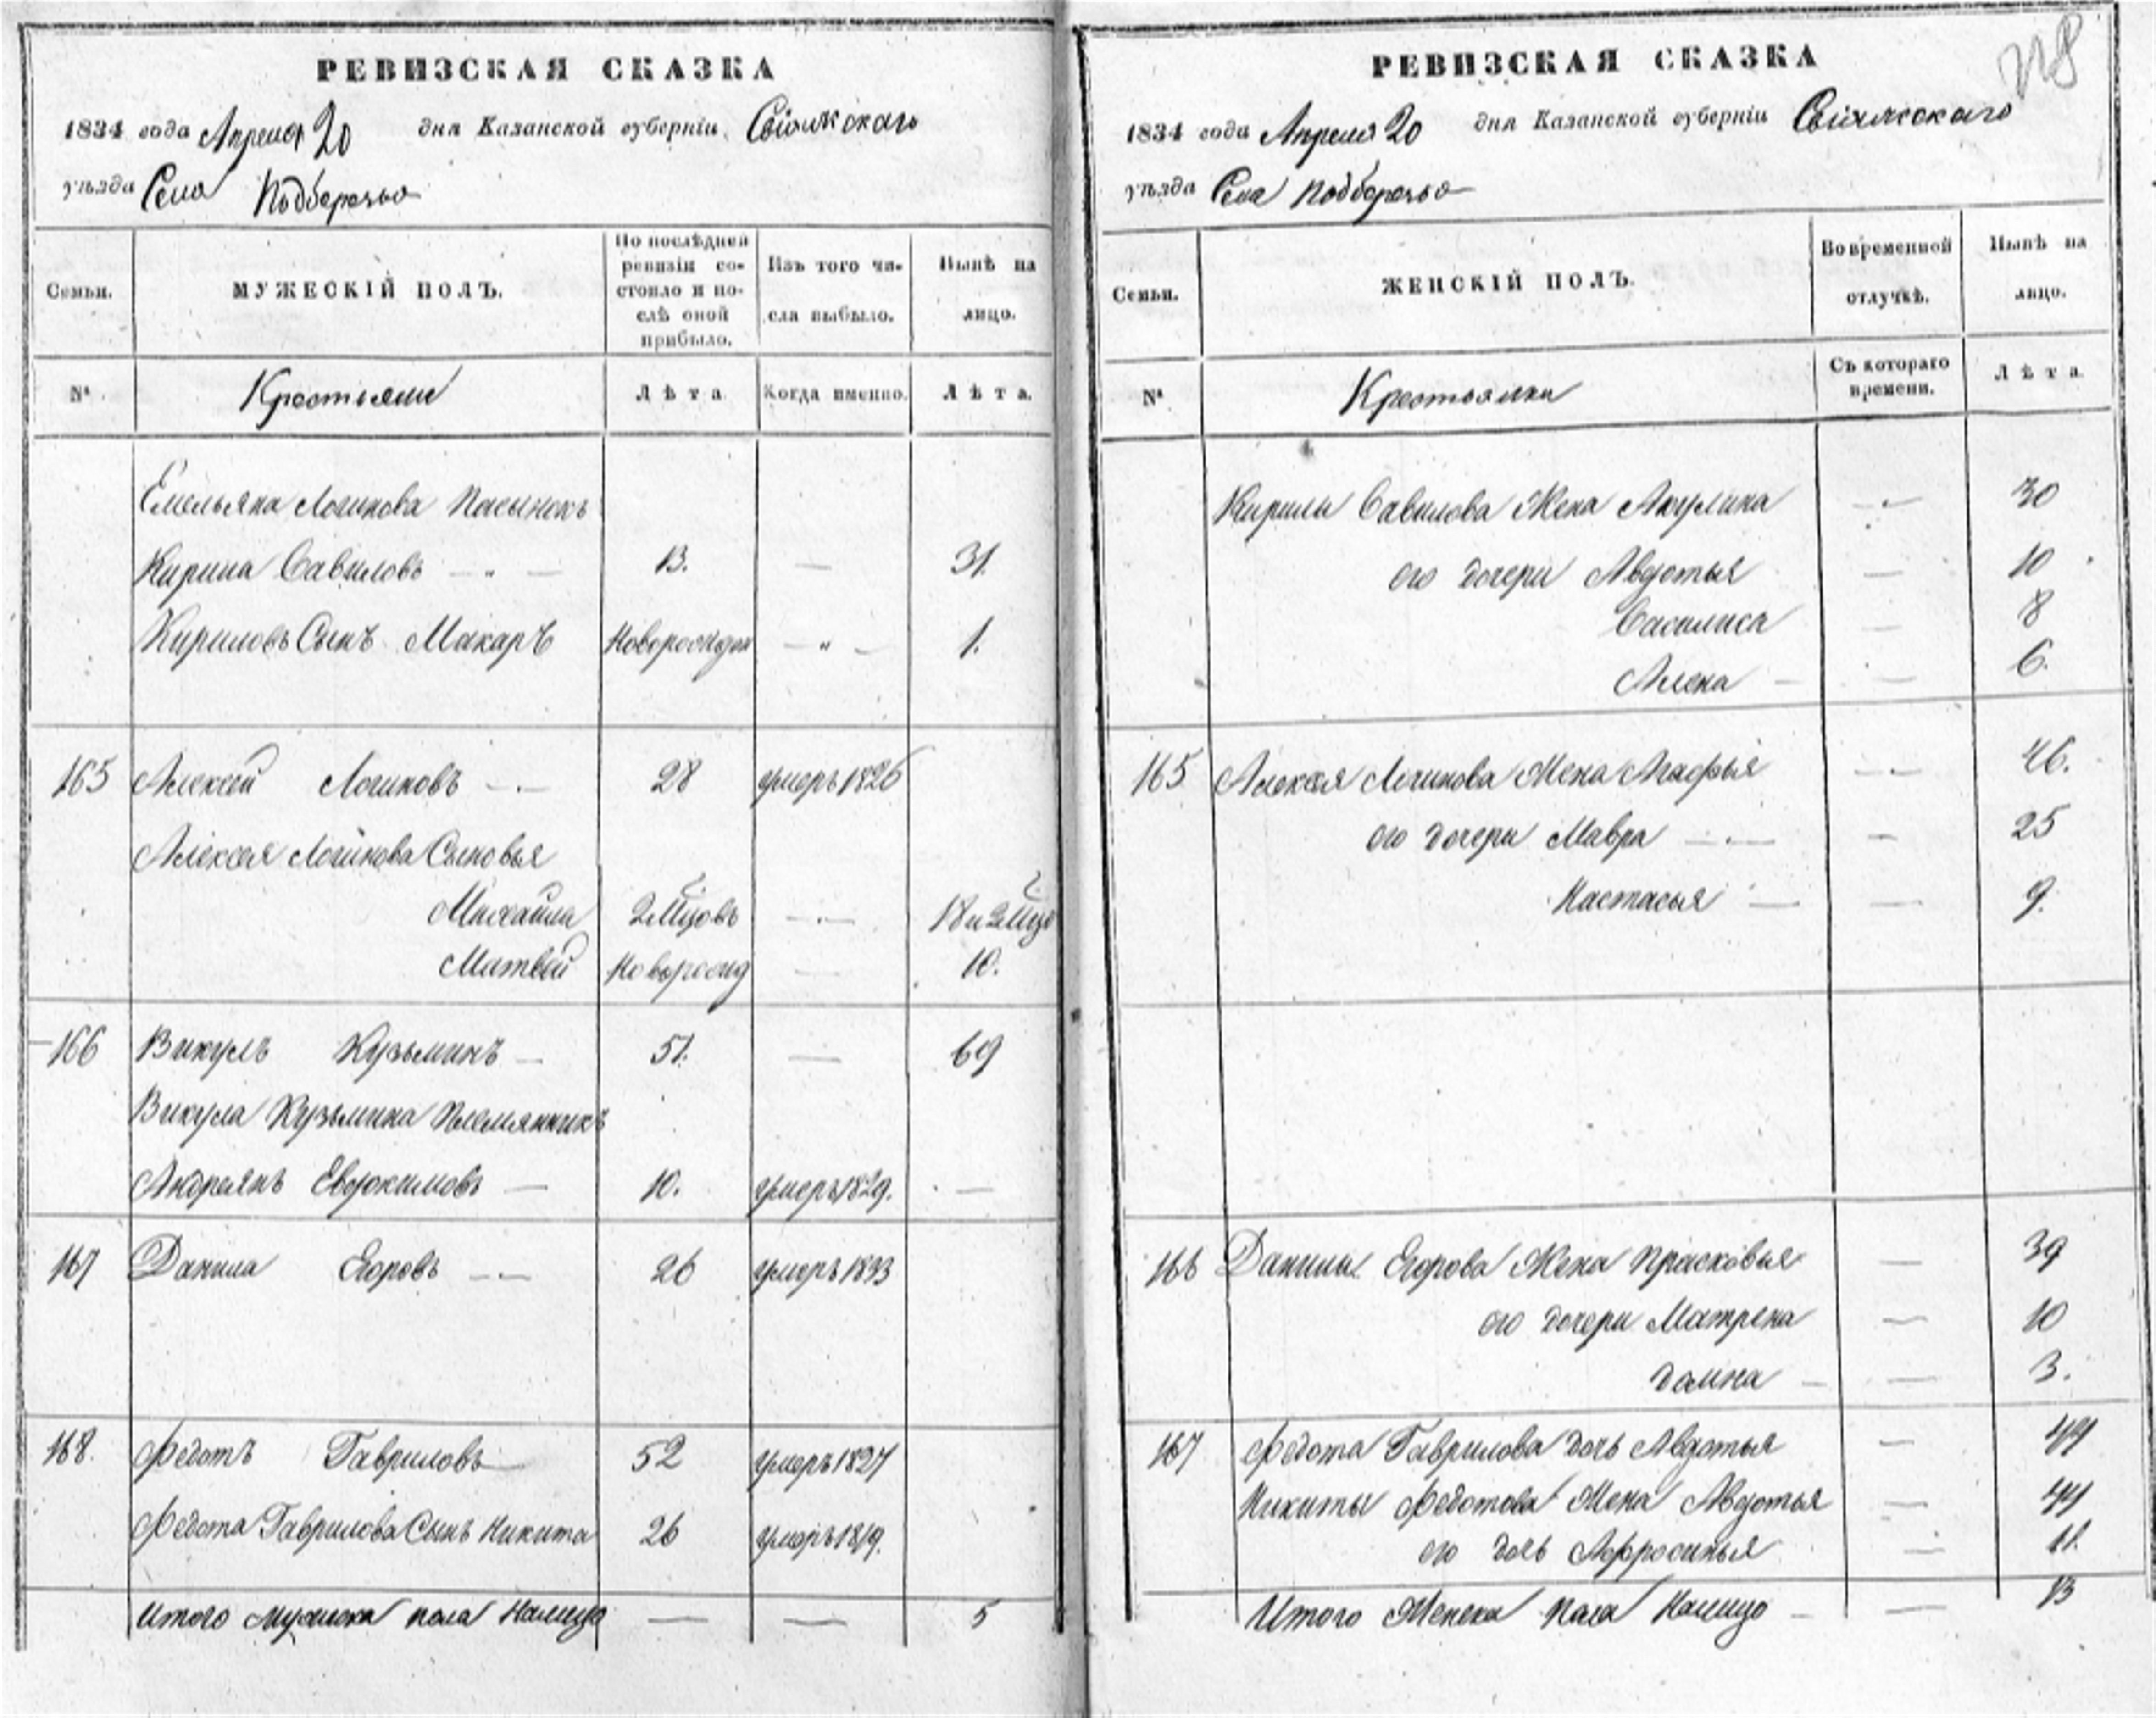 РЕВИЗСКАЯ СКАЗКА
1834 года Апреля 20 дня Казанской губерніи Свіяжскаго
уѣзда Села Подберезья
Семьи.
МУЖЕСКІЙ ПОЛЪ.
По послѣдней ревизіи состояло и послѣ оной прибыло.
Изъ того числа выбыло.
Нынѣ на лицо.
№
Крестьяне
Лѣта
Когда именно.
Лѣта.
Емельяна Логинова Пасынокъ
Кирила Савиловъ — „ — 13. — 31.
Кириловъ Сынъ Макаръ Новорожден — „ — 1.
165 Алексей Логиновъ 28 умеръ 1826
Алексея Логинова Сыновья
Михайла 2 Мцовъ — 18 и 2 Мцо
Матвей Новорожд — 10.
166 Викулъ Кузьминъ — 51. — 69
Викула Кузьмина Племянникъ
Андреянъ Евдокимовъ — 10. умеръ 1829. —
167 Данила Егоровъ 26 умеръ 1833
168. Федотъ Гавриловъ 52 умеръ 1827
Федота Гаврилова Сынъ Никита 26 умеръ 1819.
Итого мужеска пола Налицо — — 5
РЕВИЗСКАЯ СКАЗКА
1834 года Апреля 20 дня Казанской губерніи Свіяжскаго
уѣзда Села Подберезья
Семьи.
ЖЕНСКІЙ ПОЛЪ.
Во временной отлучкѣ.
Нынѣ на лицо.
№
Крестьянки
Съ котораго времени.
Лѣта
Кирилы Савилова Жена Акулина — 30
его дочери Авдотья — 10
Василиса — 8
Алена — 6.
165 Алексея Логинова Жена Агафья — 46.
его дочери Мавра — 25
Настасья — 9.
166 Данилы Егорова Жена Прасковья — 39
его дочери Матрена — 10
Домна — 3.
167 Федота Гаврилова дочь Авдотья — 49
Никиты Федотова Жена Авдотья — 44
его дочь Афросинья — 11.
Итого Женска Пола Налицо — 13